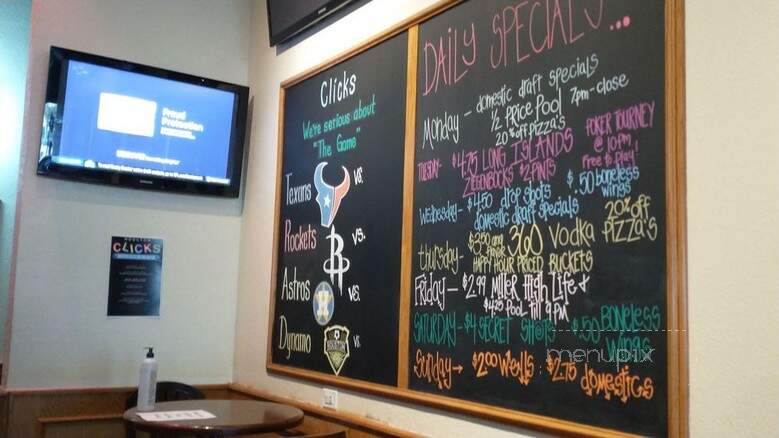 Fraud
Protection
HOUSTON
CLICKS
BILLIARDS
Clicks
We're serious about
"The Game"
Texans vs.
Rockets vs.
Astros vs.
Dynamo vs.
HOUSTON
DAILY SPECIALS...
Monday - domestic draft specials
1/2 PRICE POOL 7pm-close
20% off pizza's
TUESDAY- $4.75 LONG ISLANDS
ZIEGENBOCKS $2 PINTS
POKER TOURNEY
@ 10pm
Free to play!
Wednesday- $4.50 drop shots
domestic draft specials
$.50 boneless
wings
Thursday- $3.50 360 Vodka
HAPPY HOUR PRICED BUCKETS
20% off
PIZZA'S
Friday- $2.99 Miller High Life &
$4.25 POOL till 9 PM
SATURDAY- $4 SECRET $.50 BONELESS
WINGS
Sunday→ $2.00 Wells $2.75 domestics
menupix